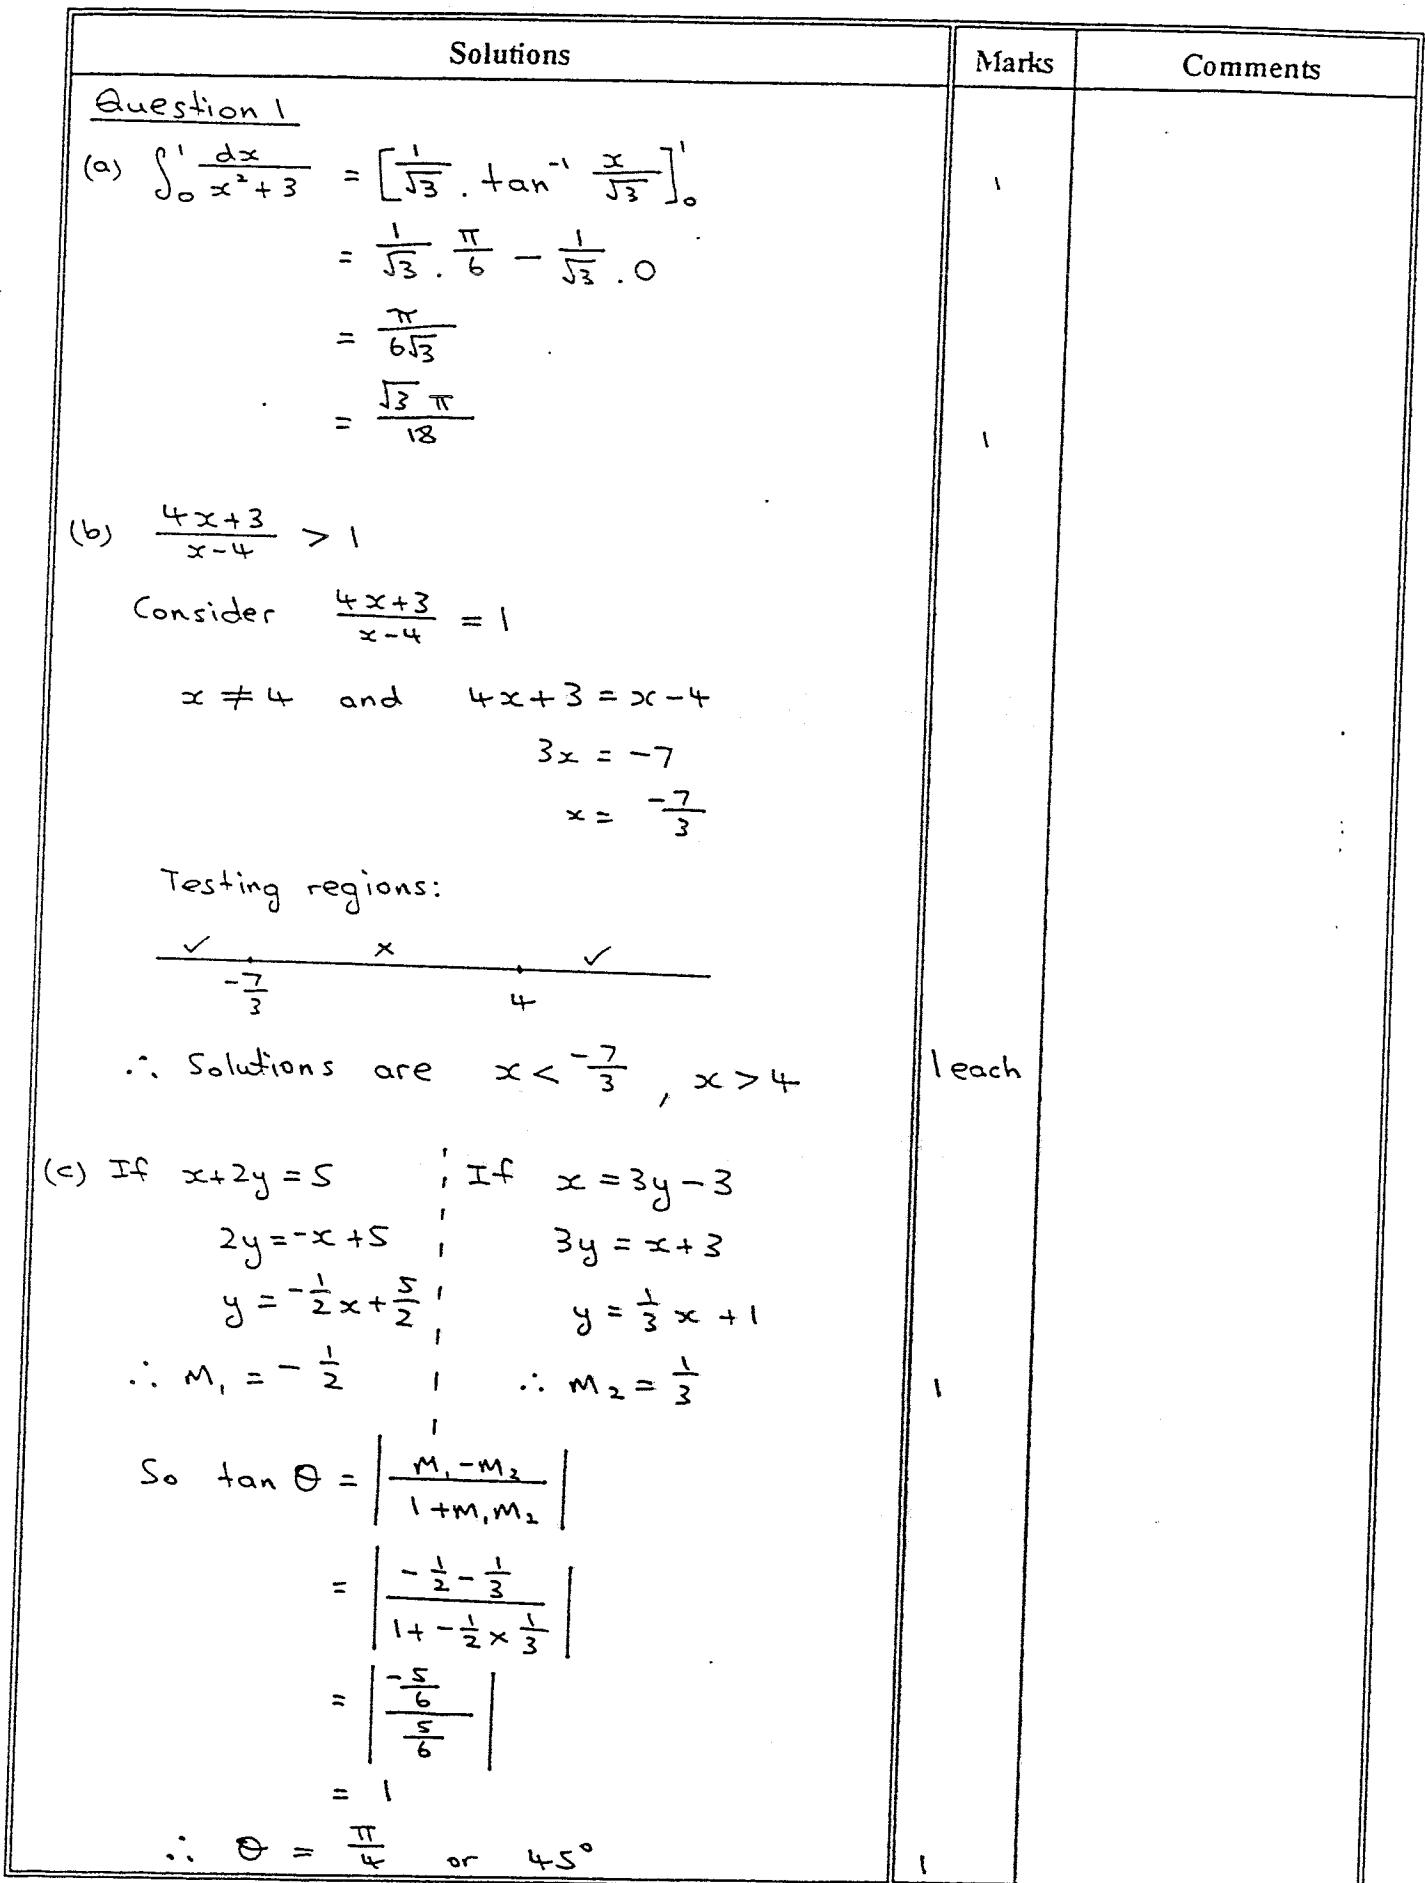 Solutions Marks Comments
Question 1
(a) ∫₀¹ dx/(x²+3) = [1/√3 . tan⁻¹ x/√3]₀¹ 1
= 1/√3 . π/6 − 1/√3 . 0
= π/(6√3)
= √3 π/18 1
(b) (4x+3)/(x-4) > 1
Consider (4x+3)/(x-4) = 1
x ≠ 4 and 4x+3 = x-4
3x = -7
x = -7/3
Testing regions:
✓ × ✓
-7/3 4
∴ Solutions are x < -7/3 , x > 4 1 each
(c) If x+2y = 5 If x = 3y-3
2y = -x+5 3y = x+3
y = -1/2 x + 5/2 y = 1/3 x + 1
∴ m₁ = -1/2 ∴ m₂ = 1/3 1
So tan θ = |(m₁-m₂)/(1+m₁m₂)|
= |(-1/2 - 1/3)/(1+ -1/2 × 1/3)|
= |(-5/6)/(5/6)|
= 1
∴ θ = π/4 or 45° 1